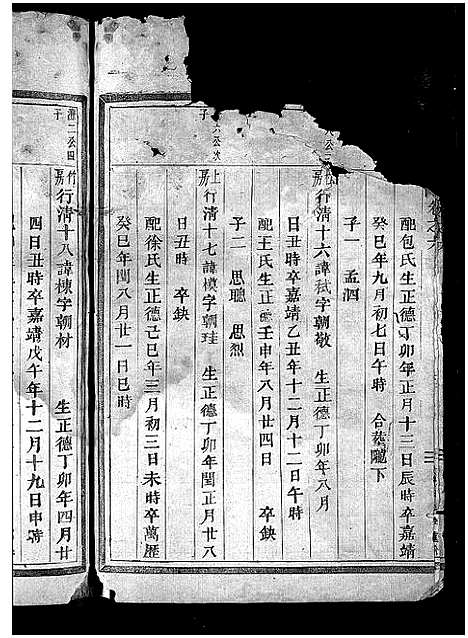 配包氏生正德丁卯年正月十二日辰時卒嘉靖
癸巳年九月初七日午時　合葬隴下
子一　孟泗
行清十六諱栻字朝敬　生正德丁卯年八月
日丑時卒嘉靖乙丑年十二月二日午時
配王氏生正德壬申年八月廿四日　卒缺
子二　思聰　思烈
六公次
子
上房
行清十七諱模字朝珪　生正德丁卯年閏正月廿八
日丑時　卒缺
配徐氏生正德己巳年三月初三日未時卒萬歷
癸巳年閏八月廿一日巳時
清二公四
子
竹房
行清十八諱棟字朝材　生正德丁卯年四月廿
四日丑時卒嘉靖戊午年十二月十九日申時